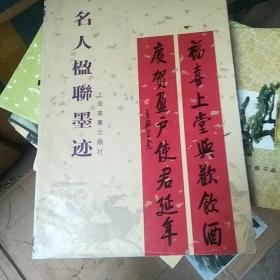 名人楹聯墨迹
上海書畫出版社
福喜上堂與歡飲酒
慶賀盈戶使君延年